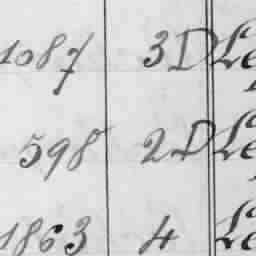 1087 3 D Le
598 2 D Le
1863 4 Le